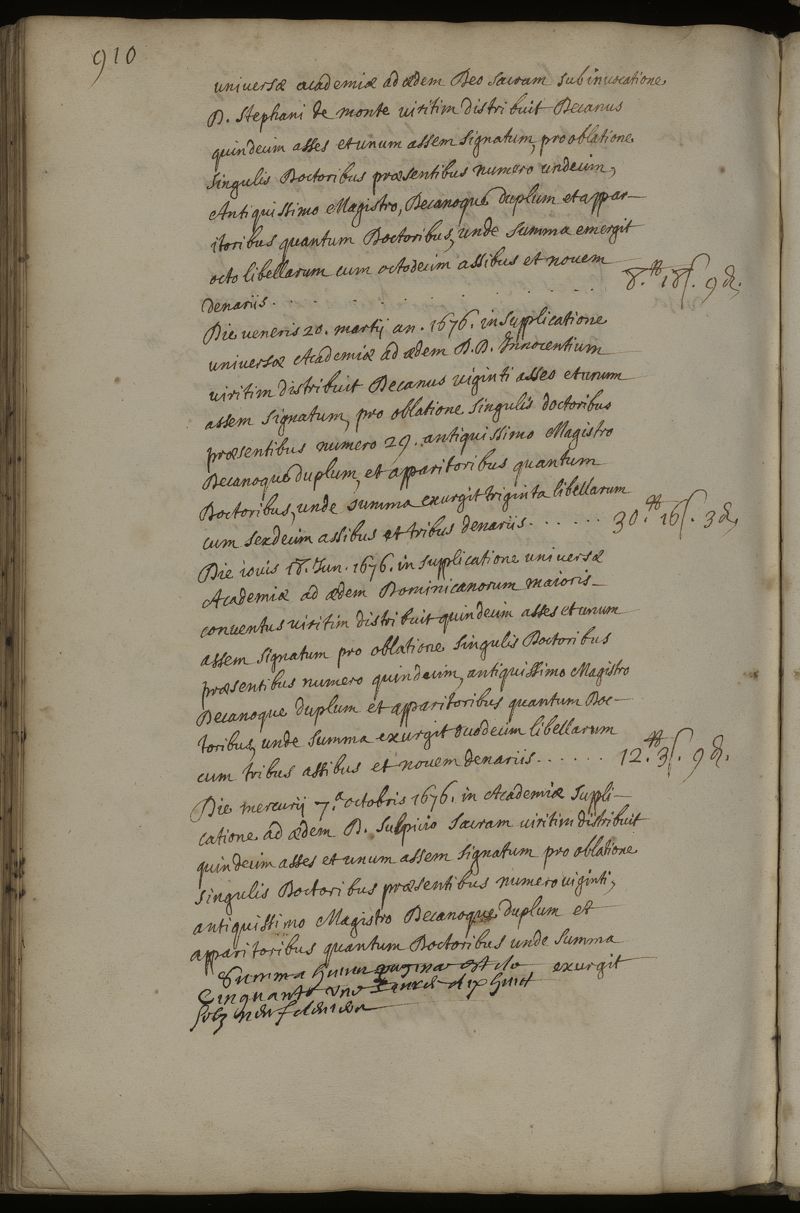 910
universæ academiæ ad ædem Deo sacram sub invocatione
D. Stephani de monte viritim distribuit Decanus
quindecim asses et unum assem signatum, pro oblatione
singulis Doctoribus præsentibus numero undecim,
Antiquissimo Magistro, Decanoque duplum et appar-
itoribus quantum Doctoribus, unde summa emergit
octo libellarum cum octodecim assibus et novem
denariis . . . . . . . . . . 8.tt 18ſ. 9 d.
Die veneris 20. martij an. 1676. in supplicatione
universæ Academiæ ad ædem D.D. Innocentium
viritim distribuit Decanus viginti asses et unum
assem signatum, pro oblatione singulis doctoribus
præsentibus numero 29. antiquissimo Magistro
Decanoque duplum, et apparitoribus quantum
Doctoribus, unde summa exurgit triginta libellarum
cum sexdecim assibus et tribus denariis . . . . . . 30.tt 16ſ. 3 d.
Die iovis 18. Jun. 1676. in supplicatione universæ
Academiæ ad ædem Dominicanorum maioris
conventus viritim distribuit quindecim asses et unum
assem signatum pro oblatione singulis Doctoribus
præsentibus numero quindecim, antiquissimo Magistro
Decanoque duplum et apparitoribus quantum Doc-
toribus, unde summa exurgit duodecim libellarum
cum tribus assibus et novem denariis . . . . . . 12.tt 3ſ. 9 d.
Die mercurij 7.a octobris 1676. in Academiæ suppli-
catione ad ædem D. Sulpicio sacram viritim distribuit
quindecim asses et unum assem signatum pro oblatione
singulis Doctoribus præsentibus numero viginti,
antiquissimo Magistro Decanoque duplum et
apparitoribus quantum Doctoribus unde summa
exurgit
Summa huius paginæ est de
Cinquante une livres dix huit
solz neuf deniers